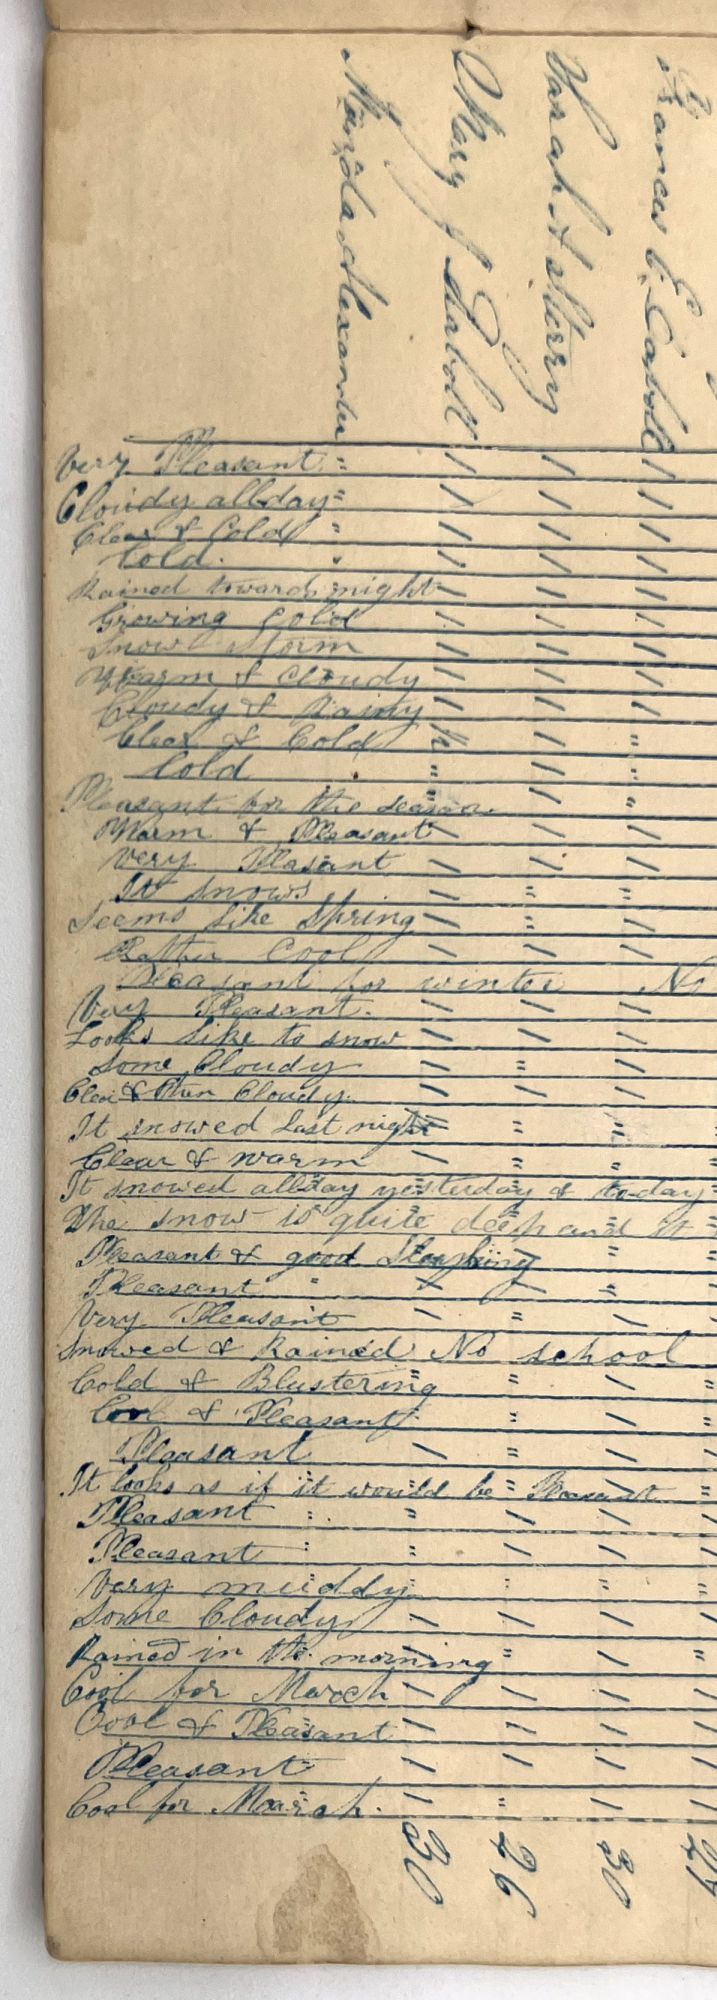 Maria da Alexander
Mary J Daboll
Sarah A Sterry
Frances E. Caboll
Very Pleasant " 1 1 1
Cloudy all day " 1 1 1
Clear & Cold " 1 1 1
Cold. " 1 1 1
Rained towards night 1 1 1
Growing Cold 1 1 1
Snow Storm 1 1 1
Warm & Cloudy 1 1 1
Cloudy & Rainy 1 1 1
Clear & Cold 1 "
Cold " 1 "
Pleasant for the season 1 "
Warm & Pleasant 1 1 1
Very Pleasant 1 1 1
It snows 1 " "
Seems like Spring 1 " 1
Rather Cool 1 1 1
Pleasant for winter No
Very Pleasant. 1 1 1
Looks like to snow 1 1 1
Some Cloudy 1 " 1
Clear & then Cloudy. 1 1 1
It snowed last night " "
Clear & warm 1 " "
It snowed all day yesterday & to-day "
The snow is quite deep and it "
Pleasant & good Sleighing " "
Pleasant " 1 1 "
Very Pleasant 1 " 1
Snowed & Rained No school
Cold & Blustering " 1 "
Cool & Pleasant " 1 "
Pleasant 1 " 1 "
It looks as if it would be Pleasant "
Pleasant " " 1 1 1
Pleasant " " 1 1 1
Very muddy " " "
Some Cloudy 1 1 1 1
Rained in the morning " 1 "
Cool for March 1 1 1 1
Cool & Pleasant 1 " 1 1
Pleasant 1 1 1 1
Cool for March. 1 " 1 1
30 26 30 27